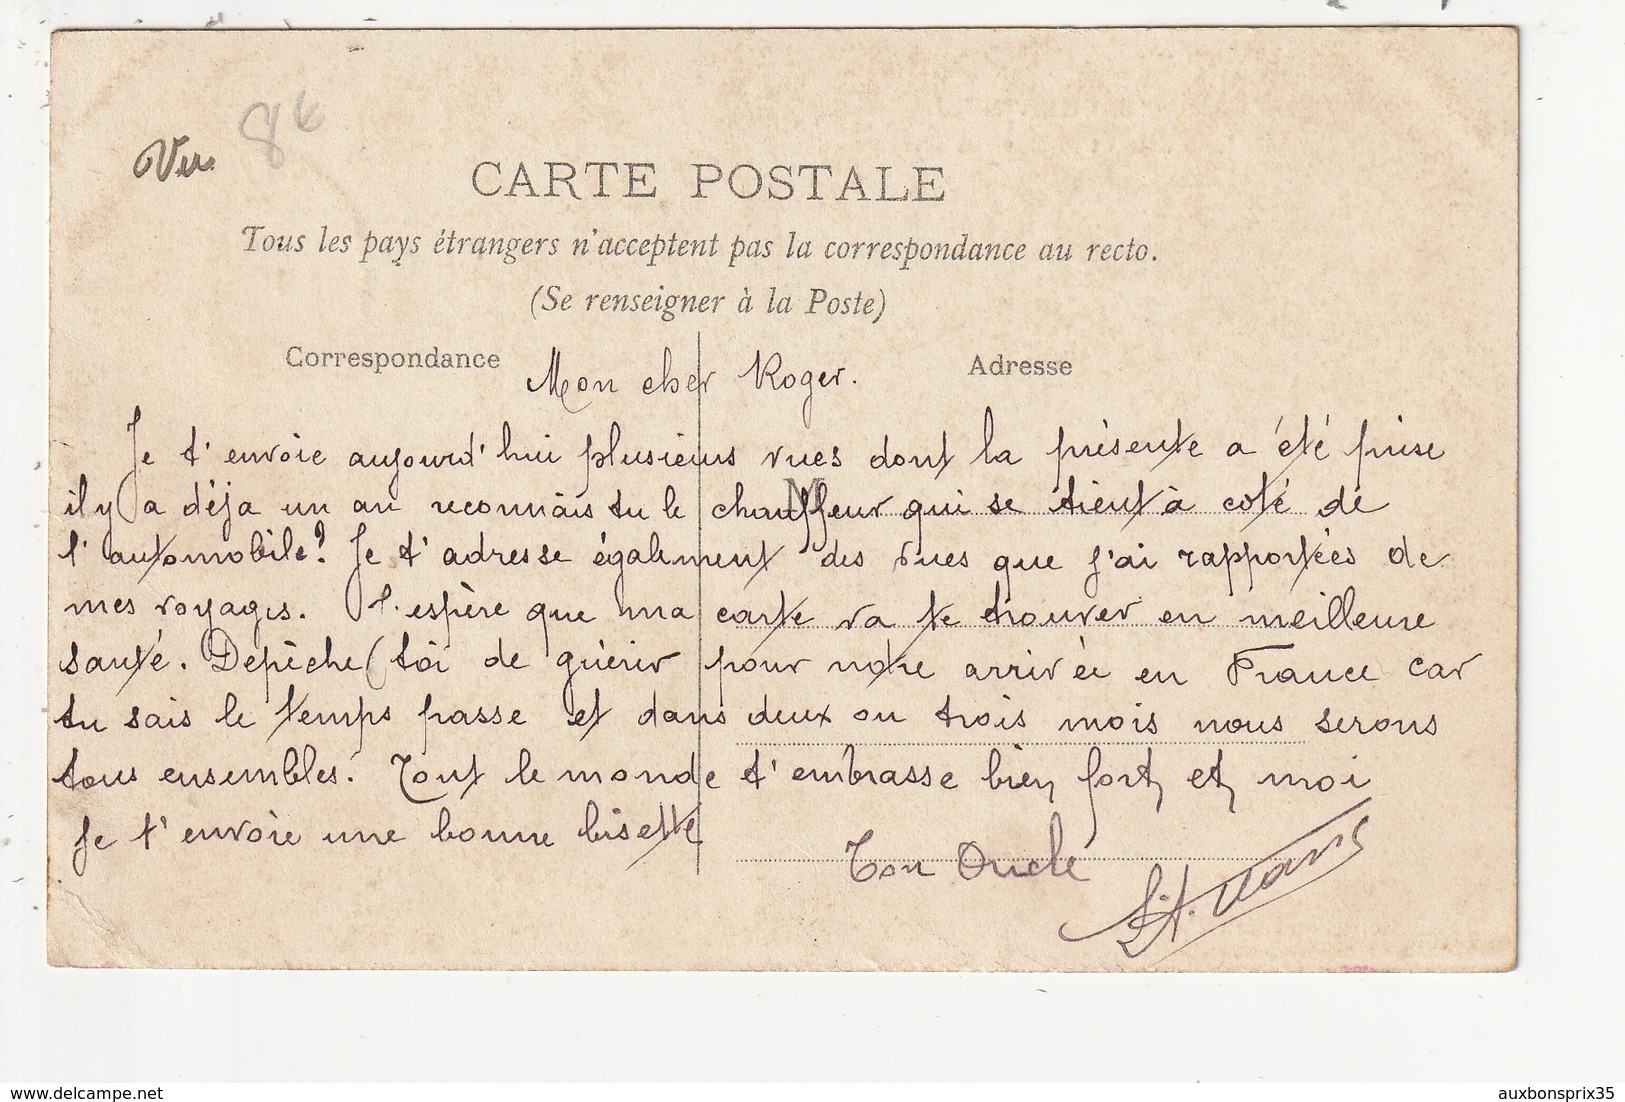 Ver. 8€
CARTE POSTALE
Tous les pays étrangers n'acceptent pas la correspondance au recto.
(Se renseigner à la Poste)
Correspondance Adresse
Mon cher Roger.
M
Je t'envoie aujourd'hui plusieurs vues dont la présente a été prise
il y a déja un an reconnais tu le chauffeur qui se tient à coté de
l'automobile? Je t'adresse également des vues que j'ai rapportées de
mes voyages. J'espère que ma carte va te trouver en meilleure
santé. Depèche toi de guérir pour notre arrivée en France car
tu sais le temps passe et dans deux ou trois mois nous serons
tous ensembles. Tout le monde t'embrasse bien fort, et, moi
je t'envoie une bonne bisette
Ton Oncle
www.delcampe.net
auxbonsprix35